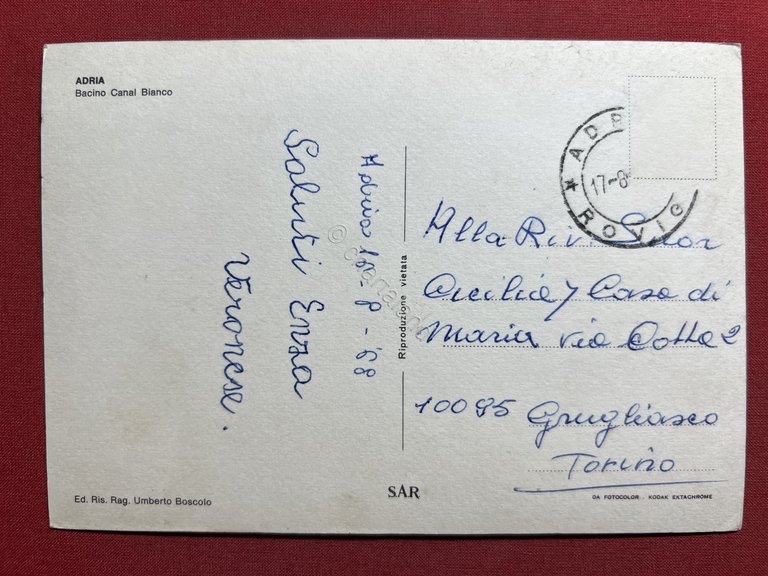 ADRIA
Bacino Canal Bianco
Adria 15-8-'68
Saluti Enza
Veronese.
Riproduzione vietata
ADR
17-8
ROVIG
Alla Rev. Suor
Cecilia Casa di
Maria via Cotta 2
10095 Grugliasco
Torino
Ed. Ris. Rag. Umberto Boscolo
SAR
DA FOTOCOLOR - KODAK EKTACHROME